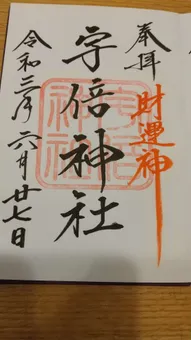 奉拝
財運神
宇倍神社
令和三年六月廿七日